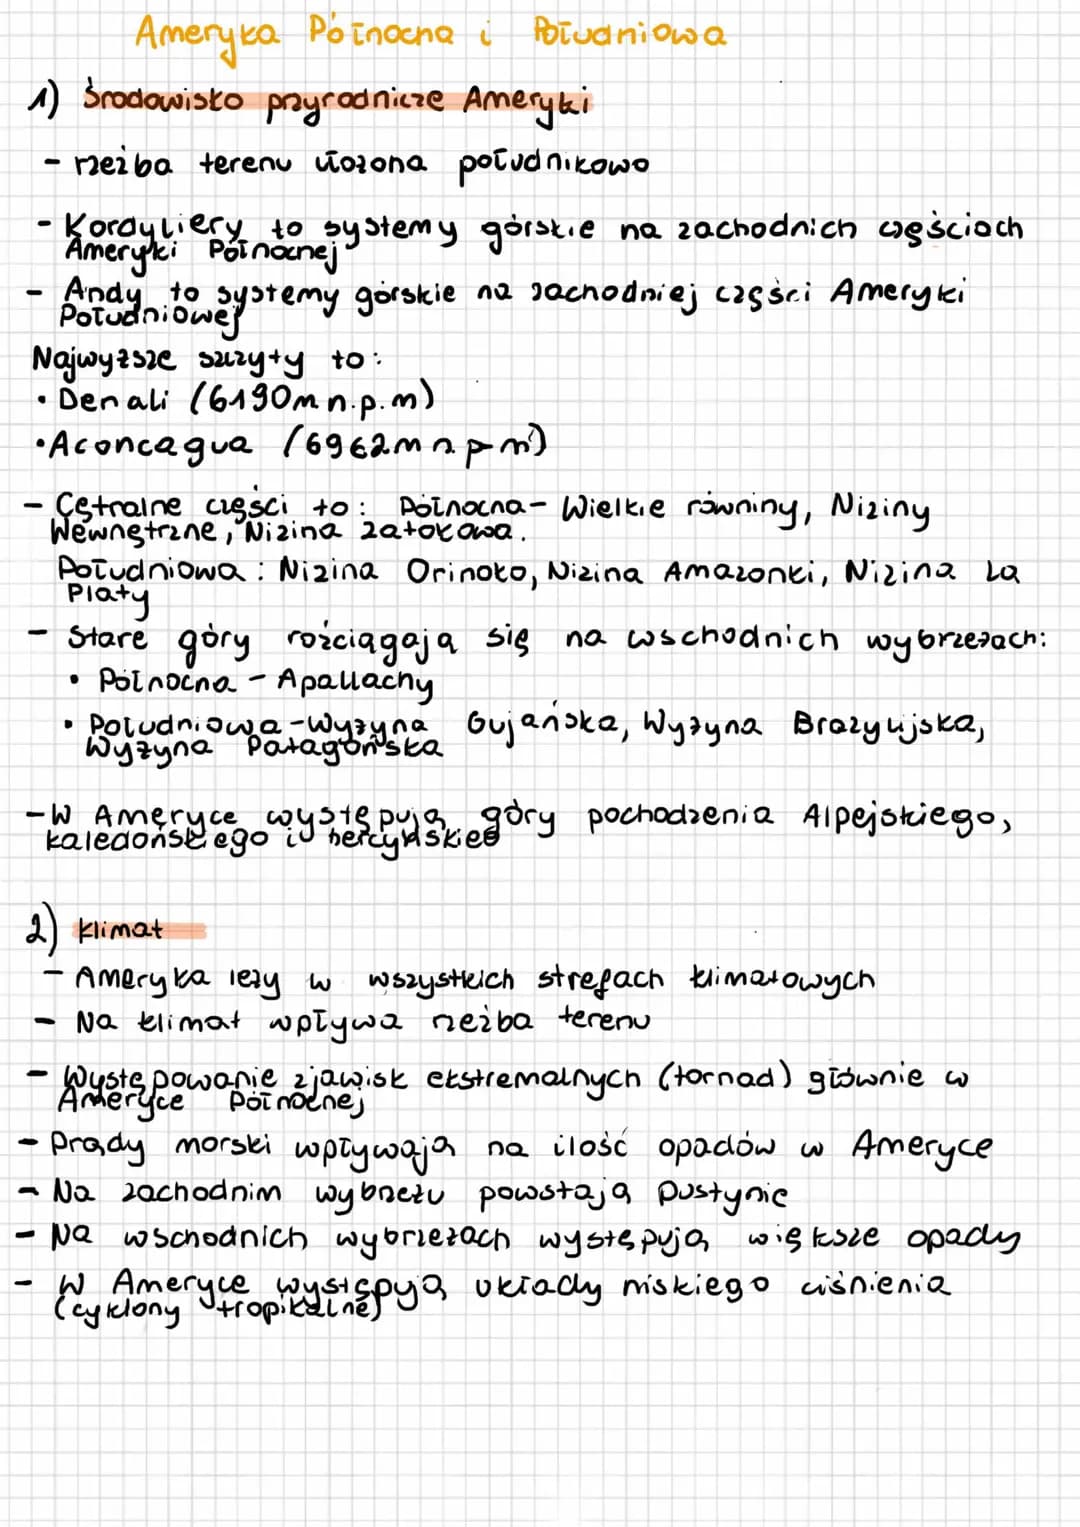 Ameryka Północna i Południowa
1) Środowisko przyrodnicze Ameryki
- rzeźba terenu ułożona południkowo
- Kordyliery to systemy górskie na zachodnich częściach
Ameryki Północnej
- Andy to systemy górskie na zachodniej części Ameryki
Południowej
Najwyższe szczyty to:
• Denali (6190m n.p.m)
• Aconcagua (6962m n p m)
- Cętralne części to: Północna- Wielkie równiny, Niziny
Wewnętrzne, Nizina zatokowa.
Południowa: Nizina Orinoko, Nizina Amazonki, Nizina La
Platy
- Stare góry rozciągają się na wschodnich wybrzeżach:
• Północna - Apallachy
• Południowa -Wyżyna Gujańska, Wyżyna Brazylijska,
Wyżyna Patagońska
- W Ameryce występują góry pochodzenia Alpejskiego,
kaledońskiego i hercyńskieg
2) klimat
- Ameryka leży w wszystkich strefach klimatowych
- Na klimat wpływa rzeźba terenu
- Występowanie zjawisk ekstremalnych (tornad) głównie w
Ameryce Północnej
- Prądy morski wpływają na ilość opadów w Ameryce
- Na zachodnim wybrzeżu powstają pustynie
- Na wschodnich wybrzeżach występują większe opady
- W Ameryce występują układy niskiego ciśnienia
(cyklony tropikalne)